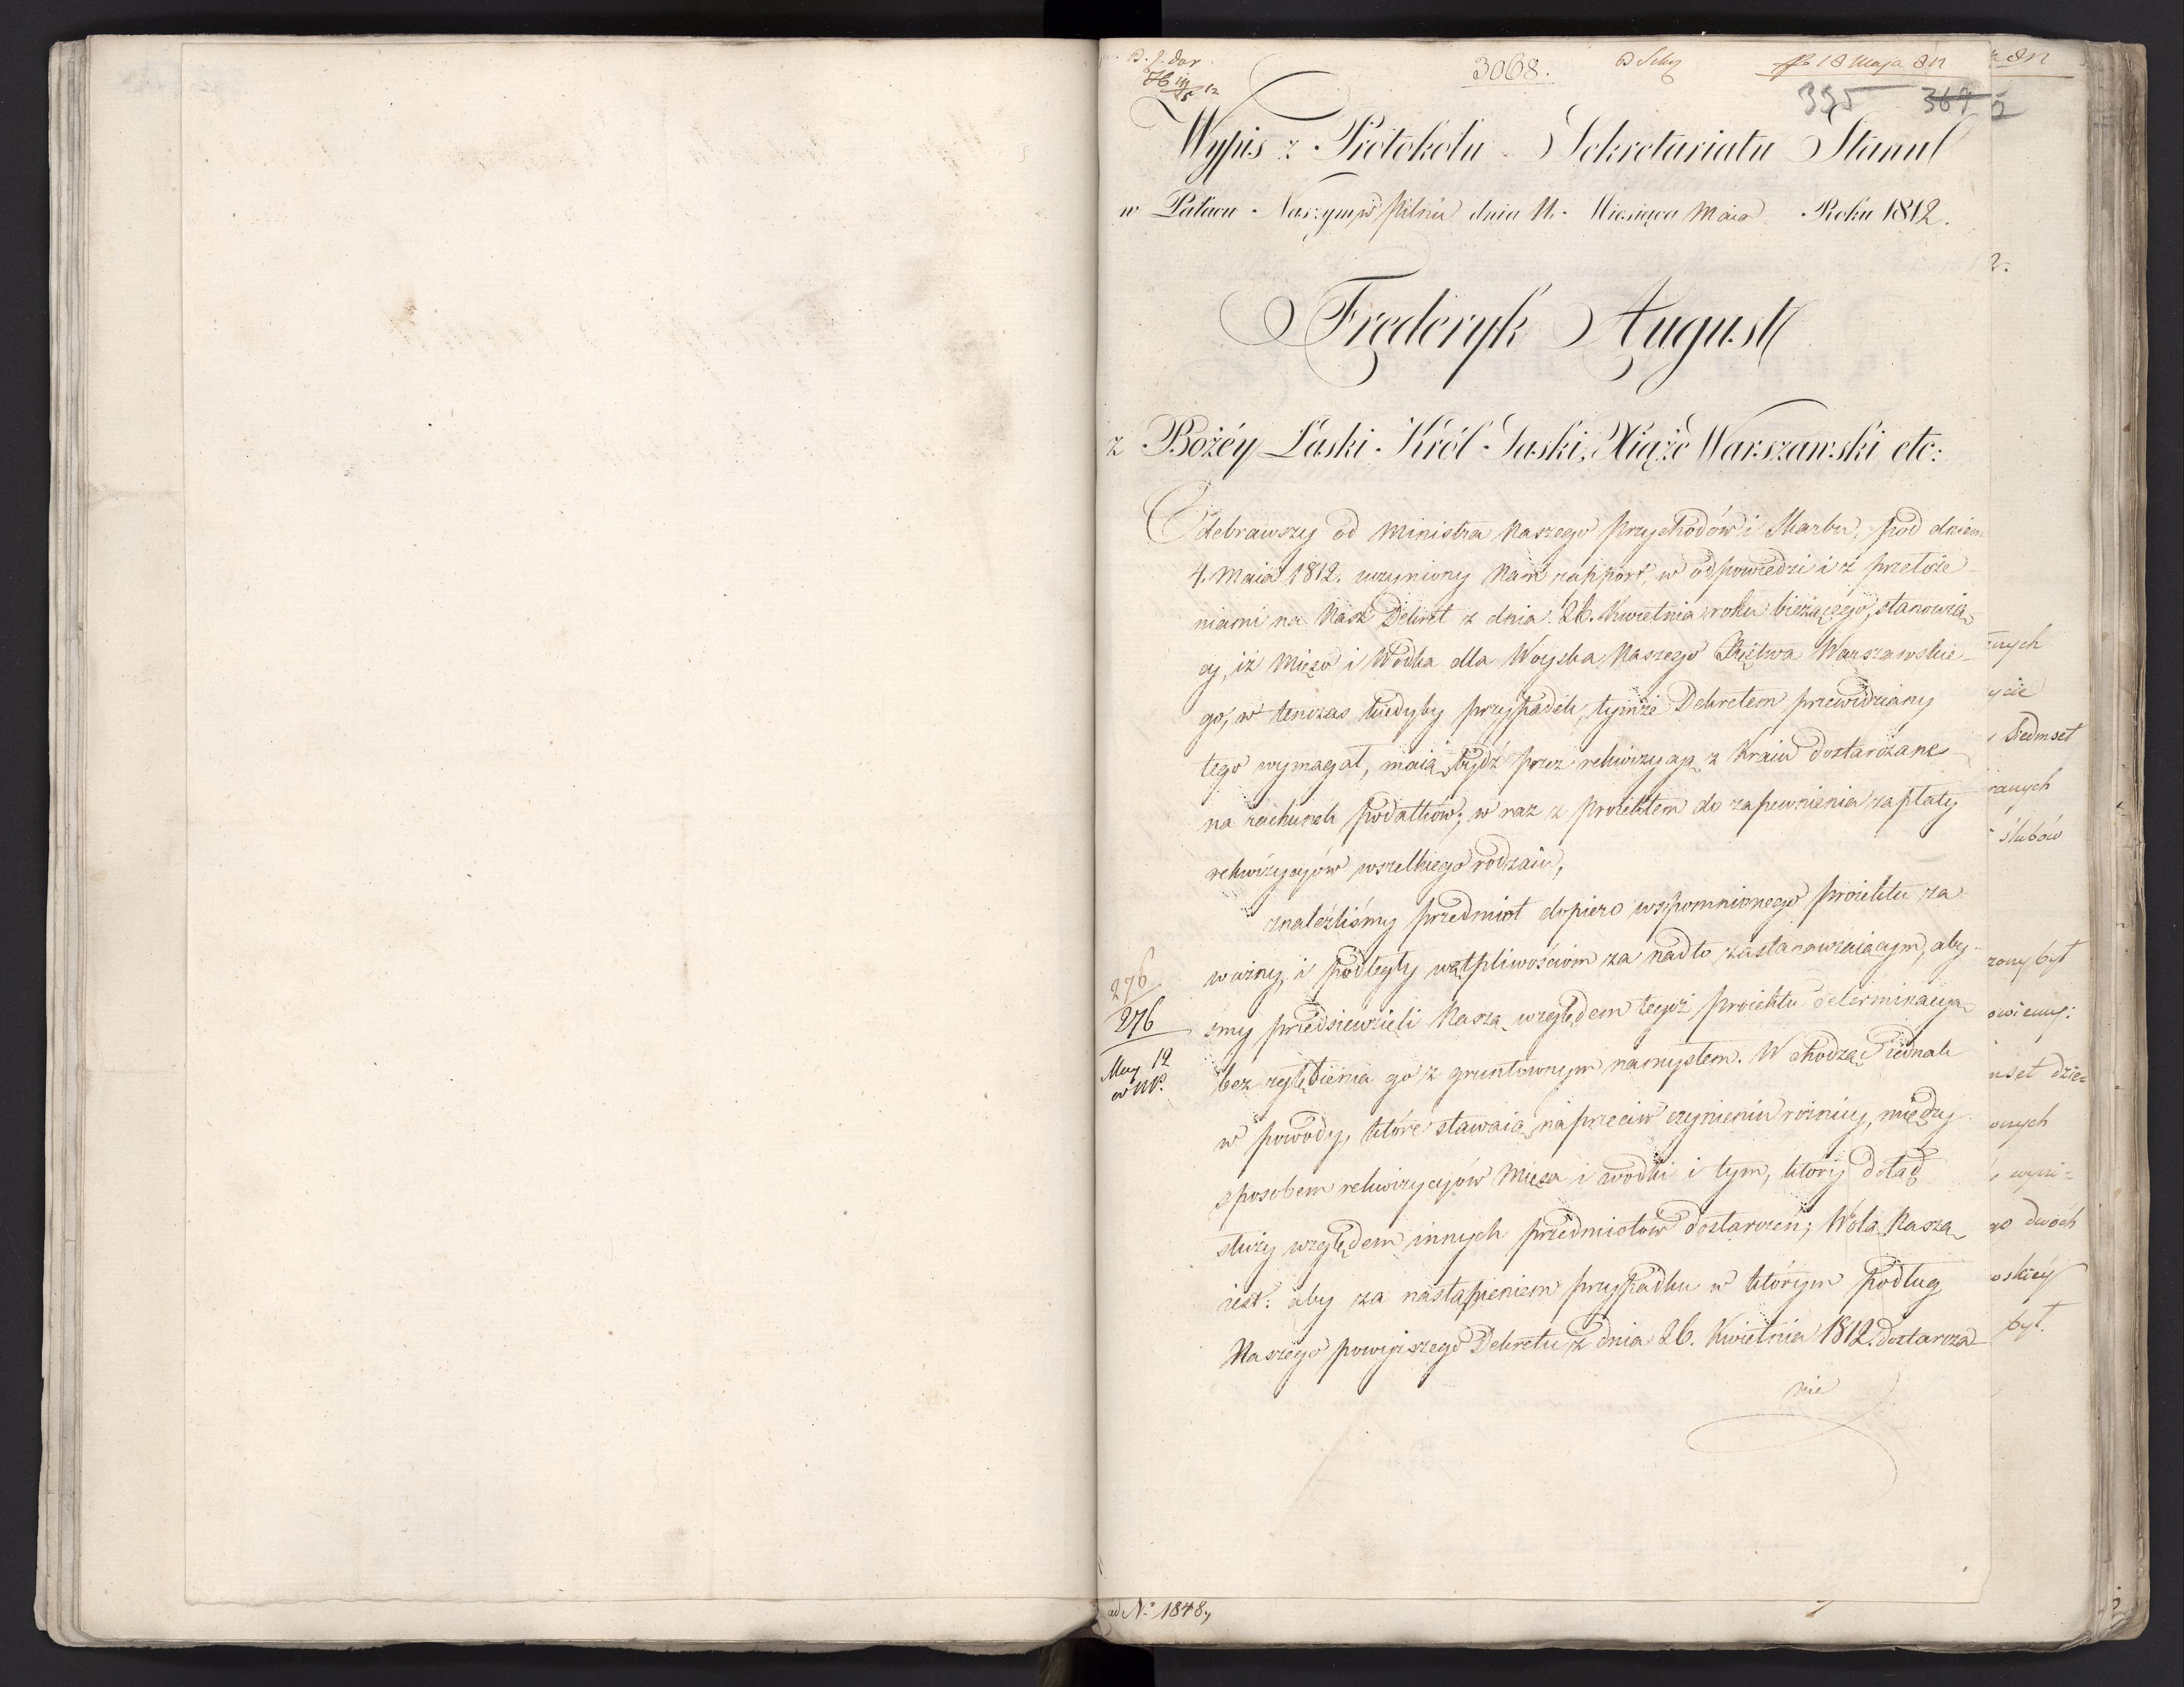 3068.
18 Maja 812
395 369
Wypis z Protokołu Sekretariatu Stanu
w Pałacu Naszym w Pilniz dnia 11. Miesiąca Maia Roku 1812.
Frederyk August
z Bożéy Łaski Król Saski, Xiąże Warszawski etc:
Odebrawszy od Ministra Naszego Przychodów i Skarbu, pod dniem
4. Maia 1812. uczyniony Nam rapport, w odpowiedzi i z przełoże-
niami na Nasz Dekret z dnia 26. Kwietnia roku bieżącego, stanowią-
cy, iż Mięso i Wódka dla Woyska Naszego Xięstwa Warszawskie-
go, w tenczas kiedyby przypadek, tymże Dekretem przewidziany
tego wymagał, maią bydź przez rekwizycyą z Kraiu dostarczane
na rachunek podatków; w raz z proiektem do zapewnienia zapłaty
rekwizycyów wszelkiego rodzaiu,
znaleźliśmy przedmiot dopiero wspomnionego proiektu za
ważny, i podległy wątpliwościom za nadto zastanawiaiącym, aby-
śmy przedsiewzieli Naszą względem tegoż proiektu determinacyą
bez zgłębienia go z gruntownym namysłem. Wchodząc iednak
w powody, które stawaią naprzeciw czynieniu różnicy, między
sposobem rekwizycyów Mięsa i wódki i tym, który dotąd
służy względem innych przedmiotów dostarczeń; Wolą Naszą
iest: aby za nastąpieniem przypadku w którym podług
Naszego powyższego Dekretu z dnia 26. Kwietnia 1812. dostarcza-
nie
276
276
May 12
ad No 1848,
812
2.
nych
ycie
Siedmset
ranych
ślubów
zony był
owiemy:
nset dzie=
onych
go dwóch
oskiey
był.